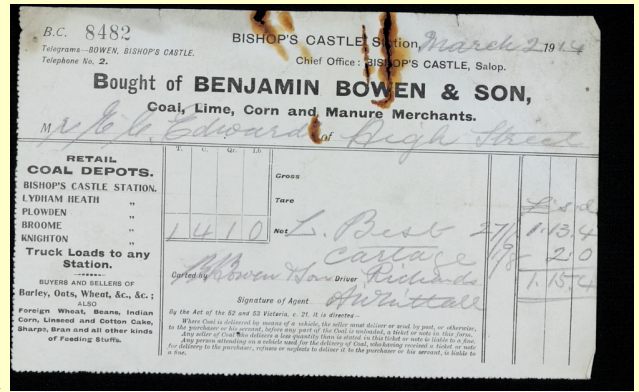 B.C. 8482
BISHOP'S CASTLE Station, March 2 1914
Telegrams—BOWEN, BISHOP'S CASTLE.
Telephone No. 2.
Chief Office: BISHOP'S CASTLE, Salop.
Bought of BENJAMIN BOWEN & SON,
Coal, Lime, Corn and Manure Merchants.
Mr E. C. Edwards of High Street
RETAIL
COAL DEPOTS.
BISHOP'S CASTLE STATION.
LYDHAM HEATH "
PLOWDEN "
BROOME "
KNIGHTON "
Truck Loads to any
Station.
BUYERS AND SELLERS OF
Barley, Oats, Wheat, &c., &c.;
ALSO
Foreign Wheat, Beans, Indian
Corn, Linseed and Cotton Cake,
Sharps, Bran and all other kinds
of Feeding Stuffs.
T. C. Qr. Lb
Gross
Tare
£ s d
1 4 1 0 Net L. Best 1.13.4
Cartage 2 0
Carted by B Bowen & Son Driver Richards 1.15.4
Signature of Agent
By the Act of the 52 and 53 Victoria, c. 21. it is directed—
Where Coal is delivered by means of a vehicle, the seller must deliver or send by post, or otherwise,
to the purchaser or his servant, before any part of the Coal is unloaded, a ticket or note in this form.
Any seller of Coal who delivers a less quantity than is stated in this ticket or note is liable to a fine.
Any person attending on a vehicle used for the delivery of Coal, who having received a ticket or note
for delivery to the purchaser, refuses or neglects to deliver it to the purchaser or his servant, is liable to
a fine.